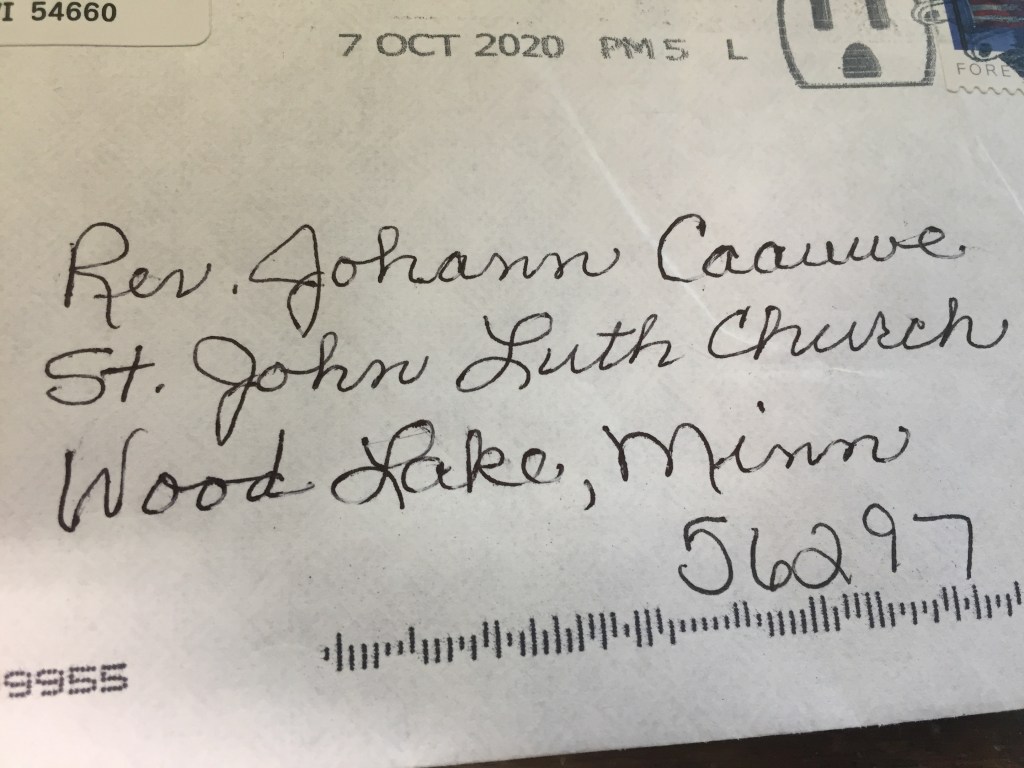 WI 54660
7 OCT 2020 PM 5 L
FORE
Rev. Johann Caauwe
St. John Luth Church
Wood Lake, Minn
56297
9955